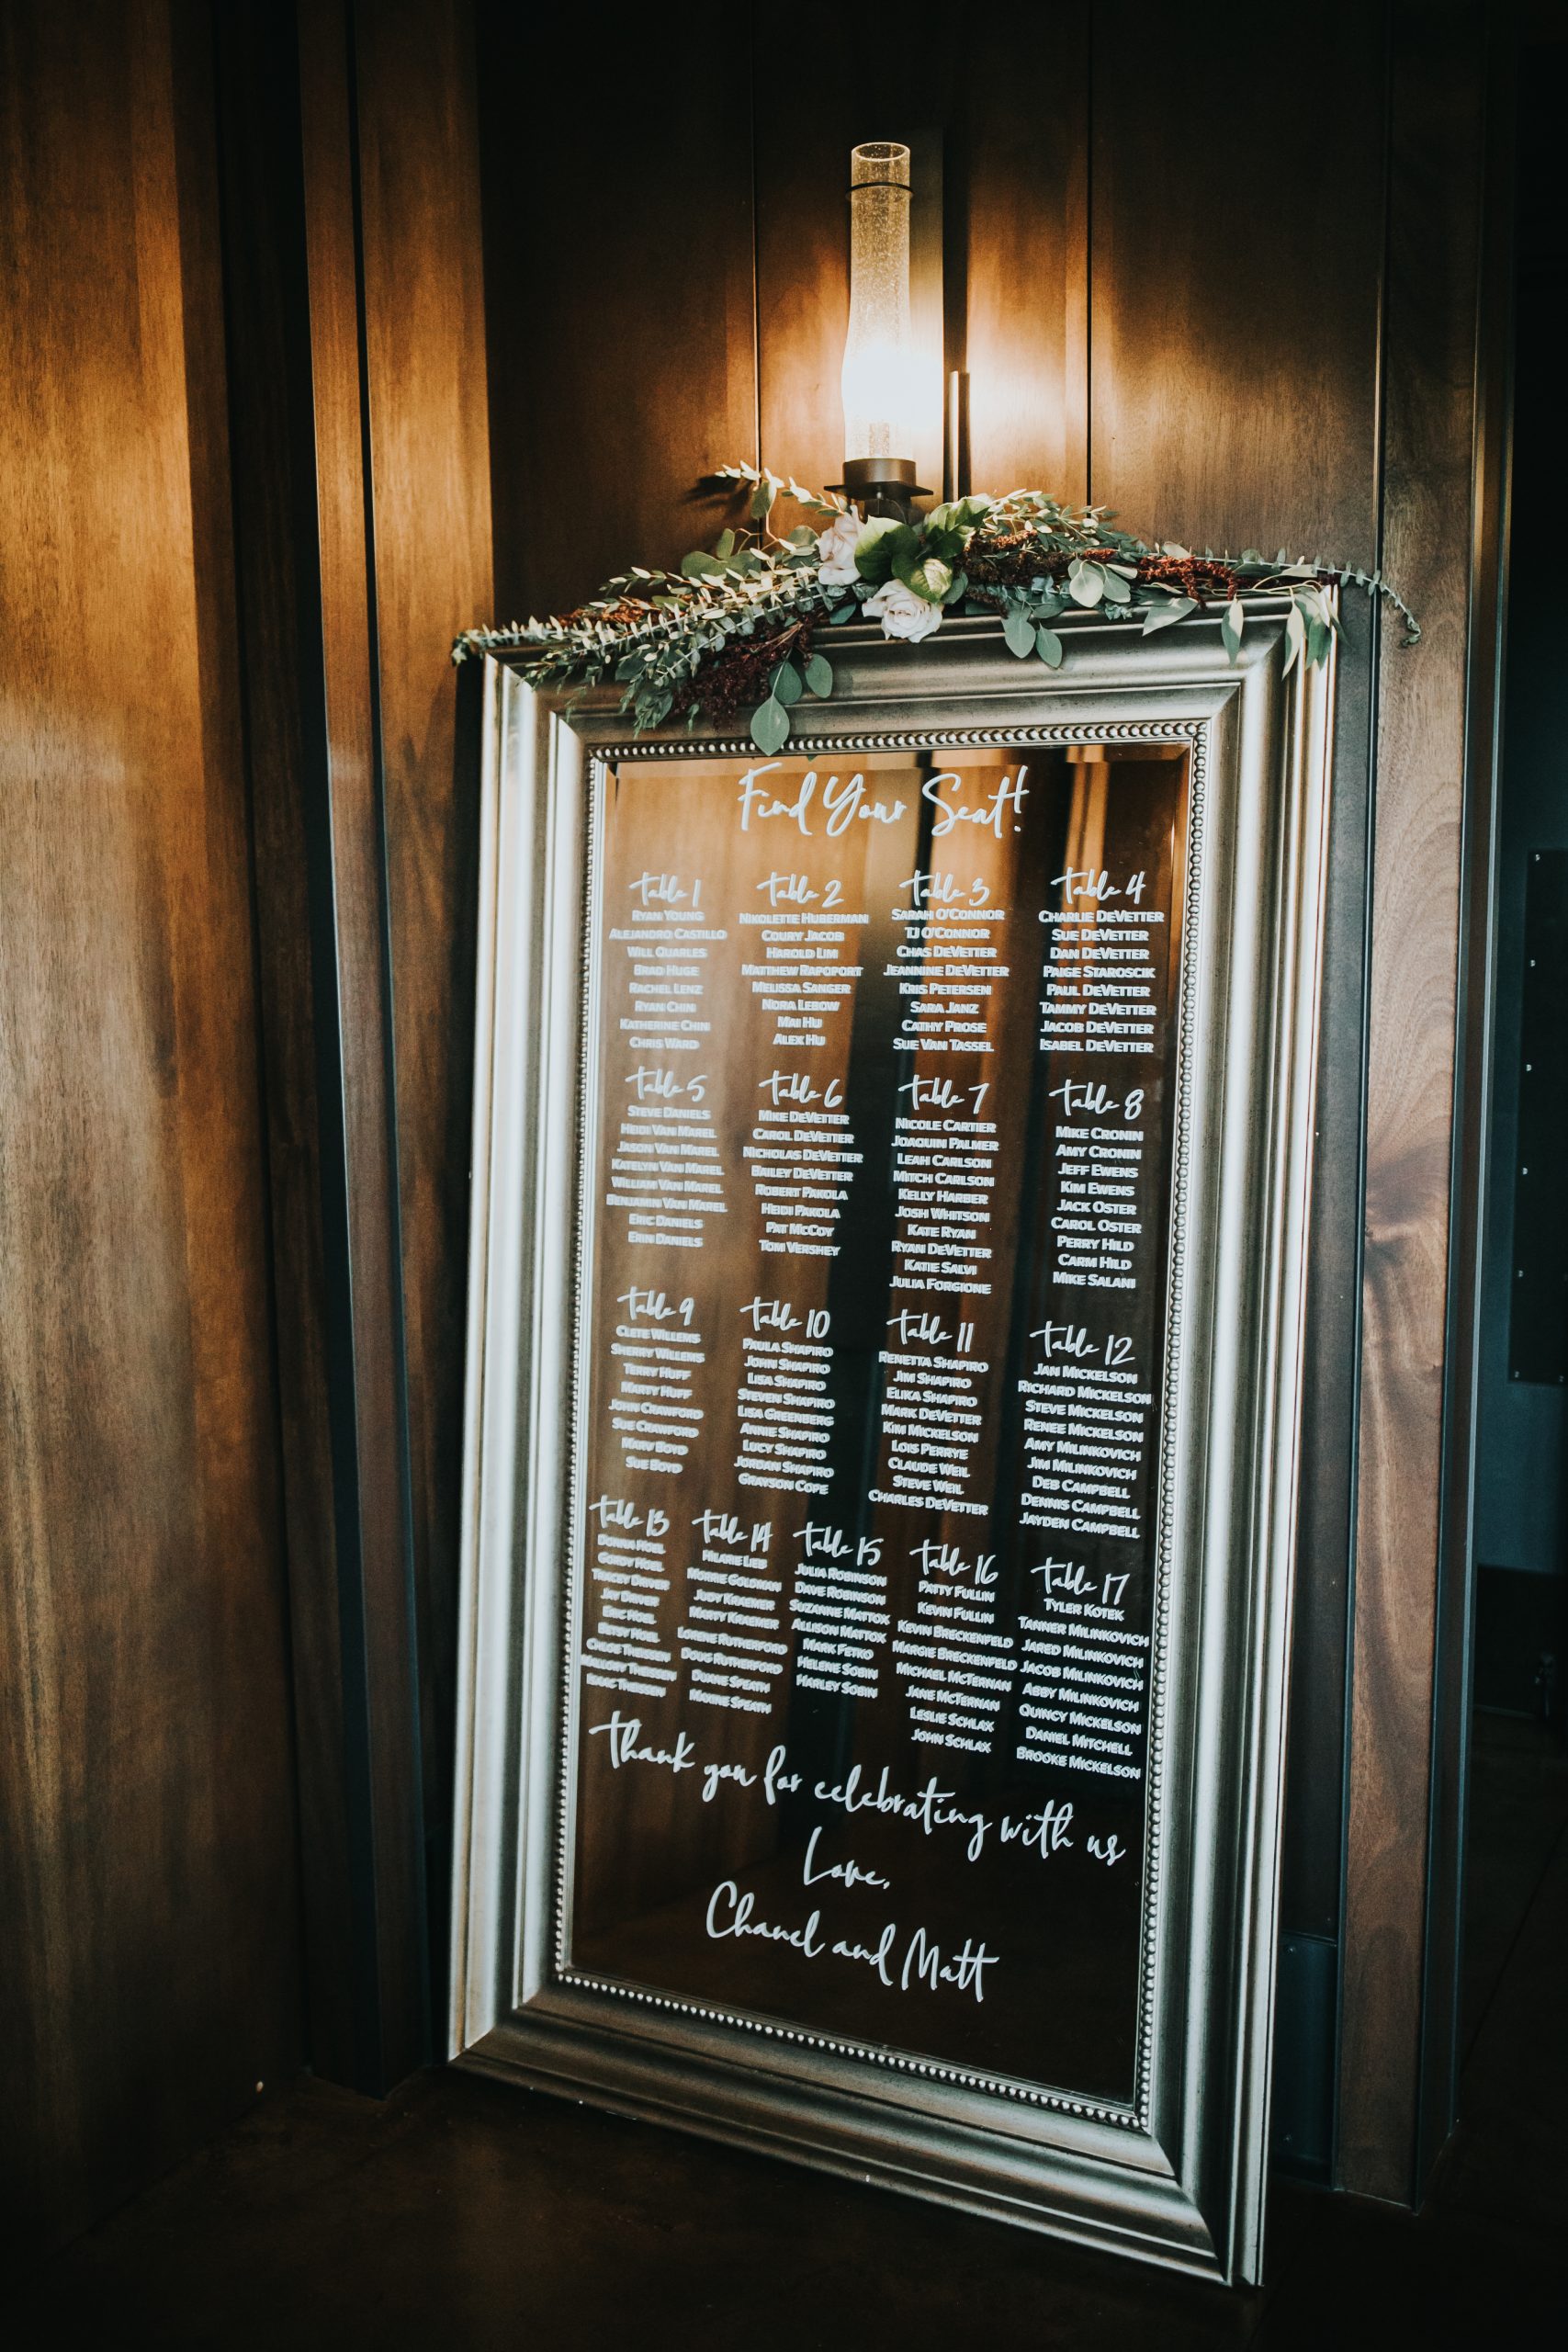 Find Your Seat!
Table 1
RYAN YOUNG
ALEJANDRO CASTILLO
WILL QUARLES
BRAD HUGE
RACHEL LENZ
RYAN CHIN
KATHERINE CHIN
CHRIS WARD
Table 2
NIKOLETTE HUBERMAN
COURY JACOB
HAROLD LIM
MATTHEW RAPOPORT
MELISSA SANGER
NORA LEBOW
MAI HU
ALEX HU
Table 3
SARAH O'CONNOR
TJ O'CONNOR
CHAS DEVETTER
JEANNINE DEVETTER
KRIS PETERSEN
SARA JANZ
CATHY PROSE
SUE VAN TASSEL
Table 4
CHARLIE DEVETTER
SUE DEVETTER
DAN DEVETTER
PAIGE STAROSCIK
PAUL DEVETTER
TAMMY DEVETTER
JACOB DEVETTER
ISABEL DEVETTER
Table 5
STEVE DANIELS
HEIDI VAN MAREL
JASON VAN MAREL
KATELYN VAN MAREL
WILLIAM VAN MAREL
BENJAMIN VAN MAREL
ERIC DANIELS
ERIN DANIELS
Table 6
MIKE DEVETTER
CAROL DEVETTER
NICHOLAS DEVETTER
BAILEY DEVETTER
ROBERT PAKOLA
HEIDI PAKOLA
PAT MCCOY
TOM VERSHEY
Table 7
NICOLE CARTIER
JOAQUIN PALMER
LEAH CARLSON
MITCH CARLSON
KELLY HARBER
JOSH WHITSON
KATE RYAN
RYAN DEVETTER
KATIE SALVI
JULIA FORGIONE
Table 8
MIKE CRONIN
AMY CRONIN
JEFF EWENS
KIM EWENS
JACK OSTER
CAROL OSTER
PERRY HILD
CARM HILD
MIKE SALANI
Table 9
CLETE WILLEMS
SHERRY WILLEMS
TERRY HUFF
MARTY HUFF
JOHN CRAWFORD
SUE CRAWFORD
MARV BOYD
SUE BOYD
Table 10
PAULA SHAPIRO
JOHN SHAPIRO
LISA SHAPIRO
STEVEN SHAPIRO
LISA GREENBERG
ANNIE SHAPIRO
LUCY SHAPIRO
JORDAN SHAPIRO
GRAYSON COPE
Table 11
RENETTA SHAPIRO
JIM SHAPIRO
ELIKA SHAPIRO
MARK DEVETTER
KIM MICKELSON
LOIS PERRYE
CLAUDE WEIL
STEVE WEIL
CHARLES DEVETTER
Table 12
JAN MICKELSON
RICHARD MICKELSON
STEVE MICKELSON
RENEE MICKELSON
AMY MILINKOVICH
JIM MILINKOVICH
DEB CAMPBELL
DENNIS CAMPBELL
JAYDEN CAMPBELL
Table 13
DONNA HOEL
GORDY HOEL
TRACEY DRIVER
JAY DRIVER
ERIC HOEL
BETSY HOEL
CHLOE THERSEN
THERSEN
ISAAC THERSEN
Table 14
HILARIE LIEB
MORRIE GOLDMAN
JUDY KRAEMER
MARTY KRAEMER
LORENE RUTHERFORD
DOUG RUTHERFORD
DUANE SPEATH
MAXINE SPEATH
Table 15
JULIA ROBINSON
DAVE ROBINSON
SUZANNE MATTOX
ALLISON MATTOX
MARK FETKO
HELENE SOBIN
HARLEY SOBIN
Table 16
PATTY FULLIN
KEVIN FULLIN
KEVIN BRECKENFELD
MARGIE BRECKENFELD
MICHAEL MCTERNAN
JANE MCTERNAN
LESLIE SCHLAX
JOHN SCHLAX
Table 17
TYLER KOTEK
TANNER MILINKOVICH
JARED MILINKOVICH
JACOB MILINKOVICH
ABBY MILINKOVICH
QUINCY MICKELSON
DANIEL MITCHELL
BROOKE MICKELSON
Thank you for celebrating with us
Love,
Chanel and Matt